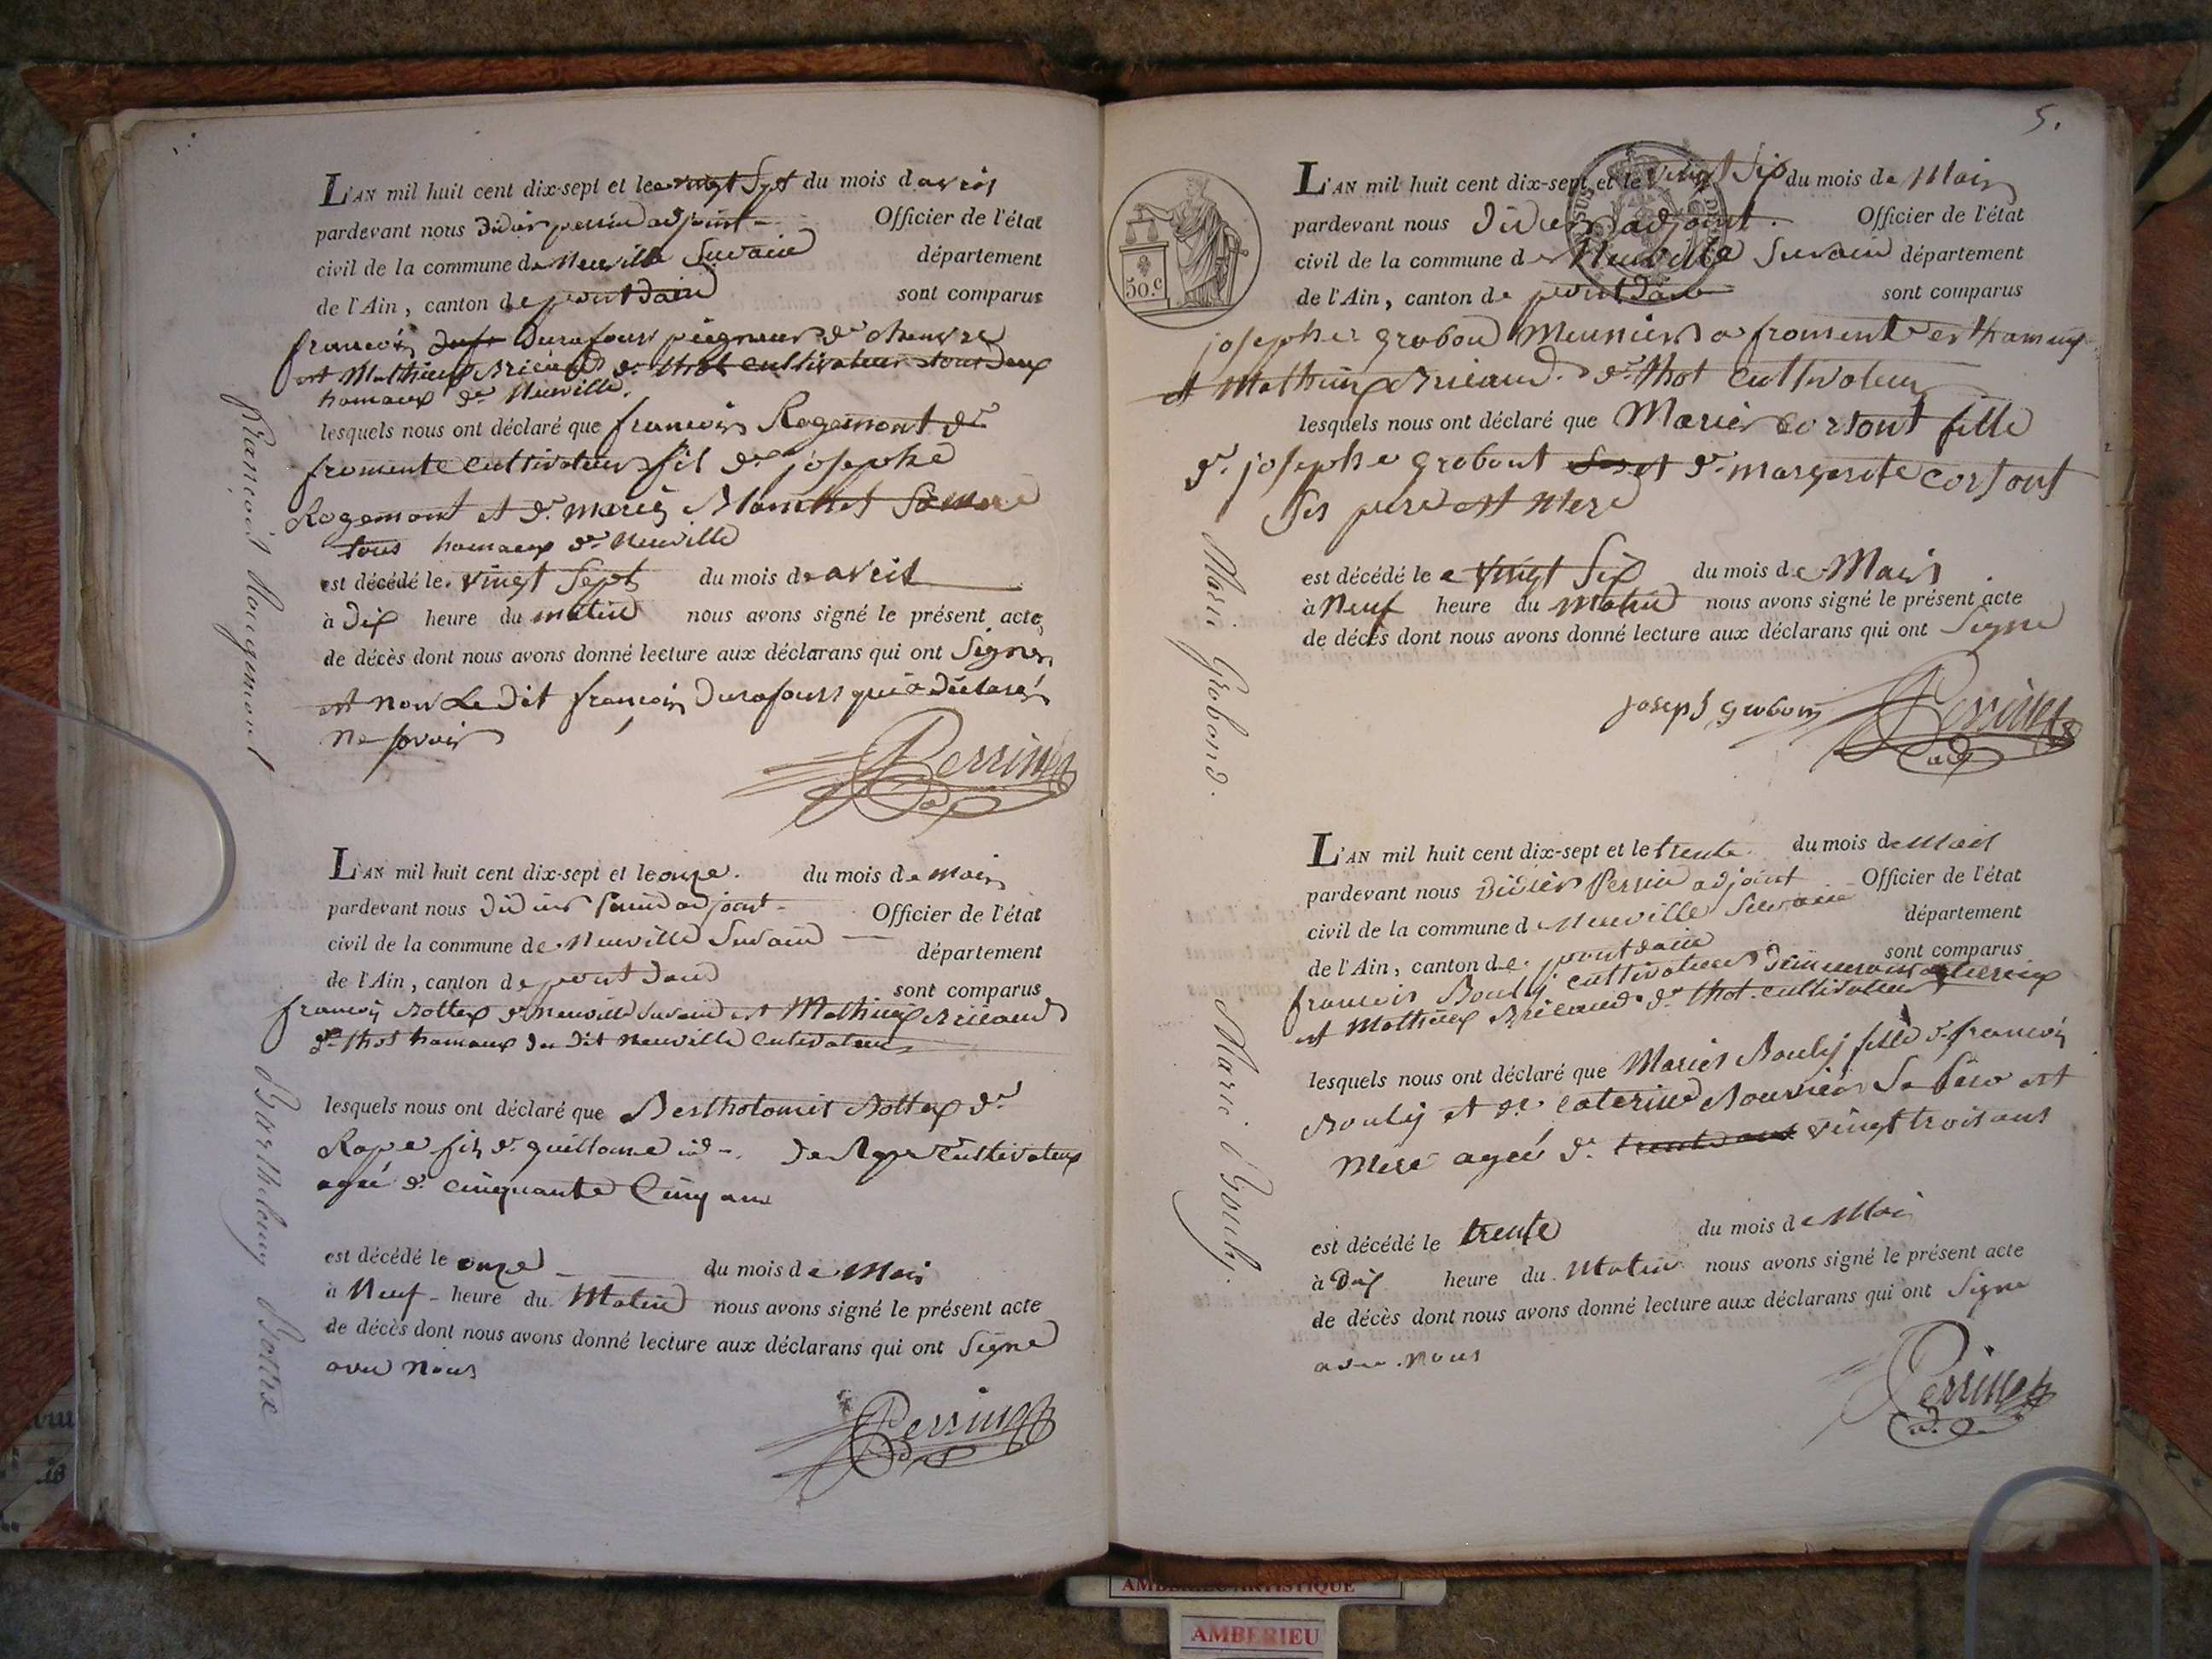 L'AN mil huit cent dix-sept et le vingt Sept du mois davril
pardevant nous Didier perrin adjoint Officier de l'état
civil de la commune de Neuville Surain département
de l'Ain, canton de pont dain sont comparus
francois Durafour peigneur de chanvre
et Mathieux Bricaud de thol cultivateur tout deux
hamaux de Neuville.
lesquels nous ont déclaré que francois Rogemont de
fromente cultivateur fil de josephe
Rogemont et de marie Blanchet Samere
tous hamaux de Neuville
est décédé le vingt Sept du mois de avril
à Dix heure du matin nous avons signé le présent acte
de décès dont nous avons donné lecture aux déclarans qui ont Signer
et non Le Dit francois Durafour qui a Déclaré
Ne savoir
Perrin
adj
François Rougemont
L'AN mil huit cent dix-sept et le onze. du mois de mais
pardevant nous Didier Perrin adjoint Officier de l'état
civil de la commune de Neuville Surain département
de l'Ain, canton de pont dain sont comparus
francois Bottex de Neuville Surain et Mathieux Bricaud
de thol hamaux du dit Neuville Cultivateur
lesquels nous ont déclaré que Bertholomier Bottex de
Rape fils de guillaume De Rape Cultivateur
agé de cinquante Cinq ans
est décédé le onze du mois de Mais
à Neuf heure du Matin nous avons signé le présent acte
de décès dont nous avons donné lecture aux déclarans qui ont Signe
avec Nous
Perrin
Barthelemy Bottex
5.
50.c
L'AN mil huit cent dix-sept et le vingt Six du mois de Mais
pardevant nous Didier adjoint. Officier de l'état
civil de la commune de Neuville Surain département
de l'Ain, canton de pont dain sont comparus
josepher grobon Meunier a fromente et hameux
et Mathieux Bricaud de thol Cultivateur
lesquels nous ont déclaré que Marier Corsont fille
de josepher grobont et de margerite corsont
Ses pere et Mere
est décédé le vingt Six du mois de Mais.
à Neuf heure du Matin nous avons signé le présent acte
de décès dont nous avons donné lecture aux déclarans qui ont Signe
joseph grobon
Perrin
adj
Marie Grobond.
L'AN mil huit cent dix-sept et le trente du mois de Mais
pardevant nous Didier Perrin adjoint Officier de l'état
civil de la commune de Neuville Surain département
de l'Ain, canton de pont dain sont comparus
francois Bouly cultivateur
et Mathieux Bricaud de thol cultivateur
lesquels nous ont déclaré que Marier Bouly fille de francois
Bouly et de Caterine Bournier Se Pere et
Mere agée de trente ans vingt trois ans
est décédé le trente du mois de Mai
à Dix heure du Matin nous avons signé le présent acte
de décès dont nous avons donné lecture aux déclarans qui ont Signe
avec nous
Perrin
Marie Bouly.
AMBERIEU ARTISTIQUE
AMBERIEU